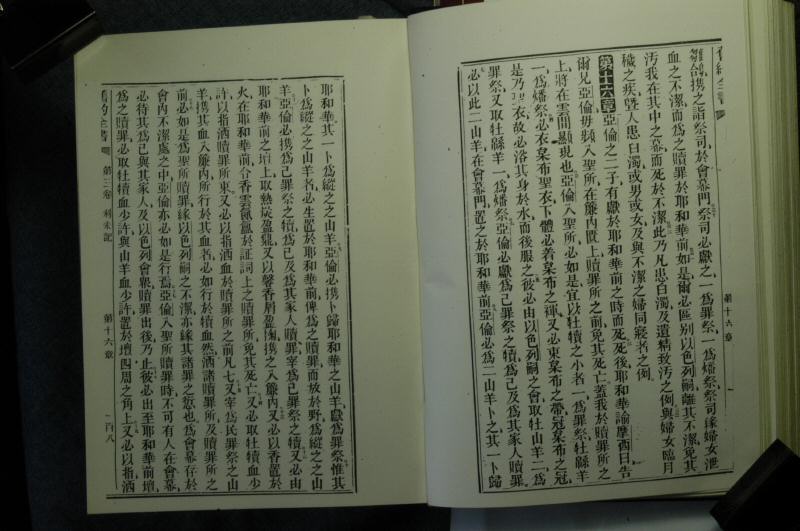 雛鴿携之詣祭司於會幕門祭司必獻之一爲罪祭一爲燔祭祭司緣婦女泄
血之不潔而爲之贖罪於耶和華前如是爾必區別以色列嗣離其不潔免其
汚我在其中之幕而死於不潔此乃凡患白濁及遺精致汚之例與婦女臨月
穢之疾曁人患白濁或男或女及與不潔之婦同寢者之例
第十六章亞倫之二子有獻於耶和華前之時而死死後耶和華諭摩西曰告
爾兄亞倫毋頻入聖所在簾內匱上贖罪所之前免其死亡蓋我於贖罪所之
上將在雲間顯現也亞倫入聖所必如是宜以牡犢之小者一爲罪祭牡緜羊
一爲燔祭必衣枲布聖衣下體必着枲布之褌又必束枲布之帶冠枲布之冠
是乃聖衣故必洛其身於水而後服之彼必由以色列嗣之會取牡山羊二爲
罪祭又取牡緜羊一爲燔祭亞倫必獻爲己罪祭之犢爲己及爲其家人贖罪
必以此二山羊在會幕門置之於耶和華前亞倫必爲二山羊卜之其一卜歸
第十六章
耶和華其一卜爲縱之之山羊亞倫必携卜歸耶和華之山羊獻爲罪祭惟其
卜爲縱之之山羊者必生置於耶和華前俾爲之贖罪而放於野爲縱之之山
羊亞倫必携爲己罪祭之犢爲己及爲其家人贖罪宰爲己罪祭之犢又必由
耶和華前之壇上取熱炭盈鼎又以馨香屑盈掬携之入簾內又必以香置於
火在耶和華前令香雲氤氳於証詞上之贖罪所免其死亡又必取牡犢血少
許以指洒贖罪所東又必以指洒血於贖罪所之前凡七又宰爲民罪祭之山
羊携其血入簾內所行於其血者必如行於犢血然洒諸贖罪所及贖罪所之
前必如是爲聖所贖罪緣以色列嗣之不潔亦緣其諸罪之愆也爲會幕存於
會內不潔處之中亞倫亦必如是行焉亞倫入聖所贖罪時不可有人在會幕
必待其爲己與其家人及以色列會衆贖罪出後乃止彼必出至耶和華前壇
爲之贖罪必取牡犢血少許與山羊血少許置於壇四周之角上又必以指洒
舊約全書 第三卷 利未記 第十六章 一百八